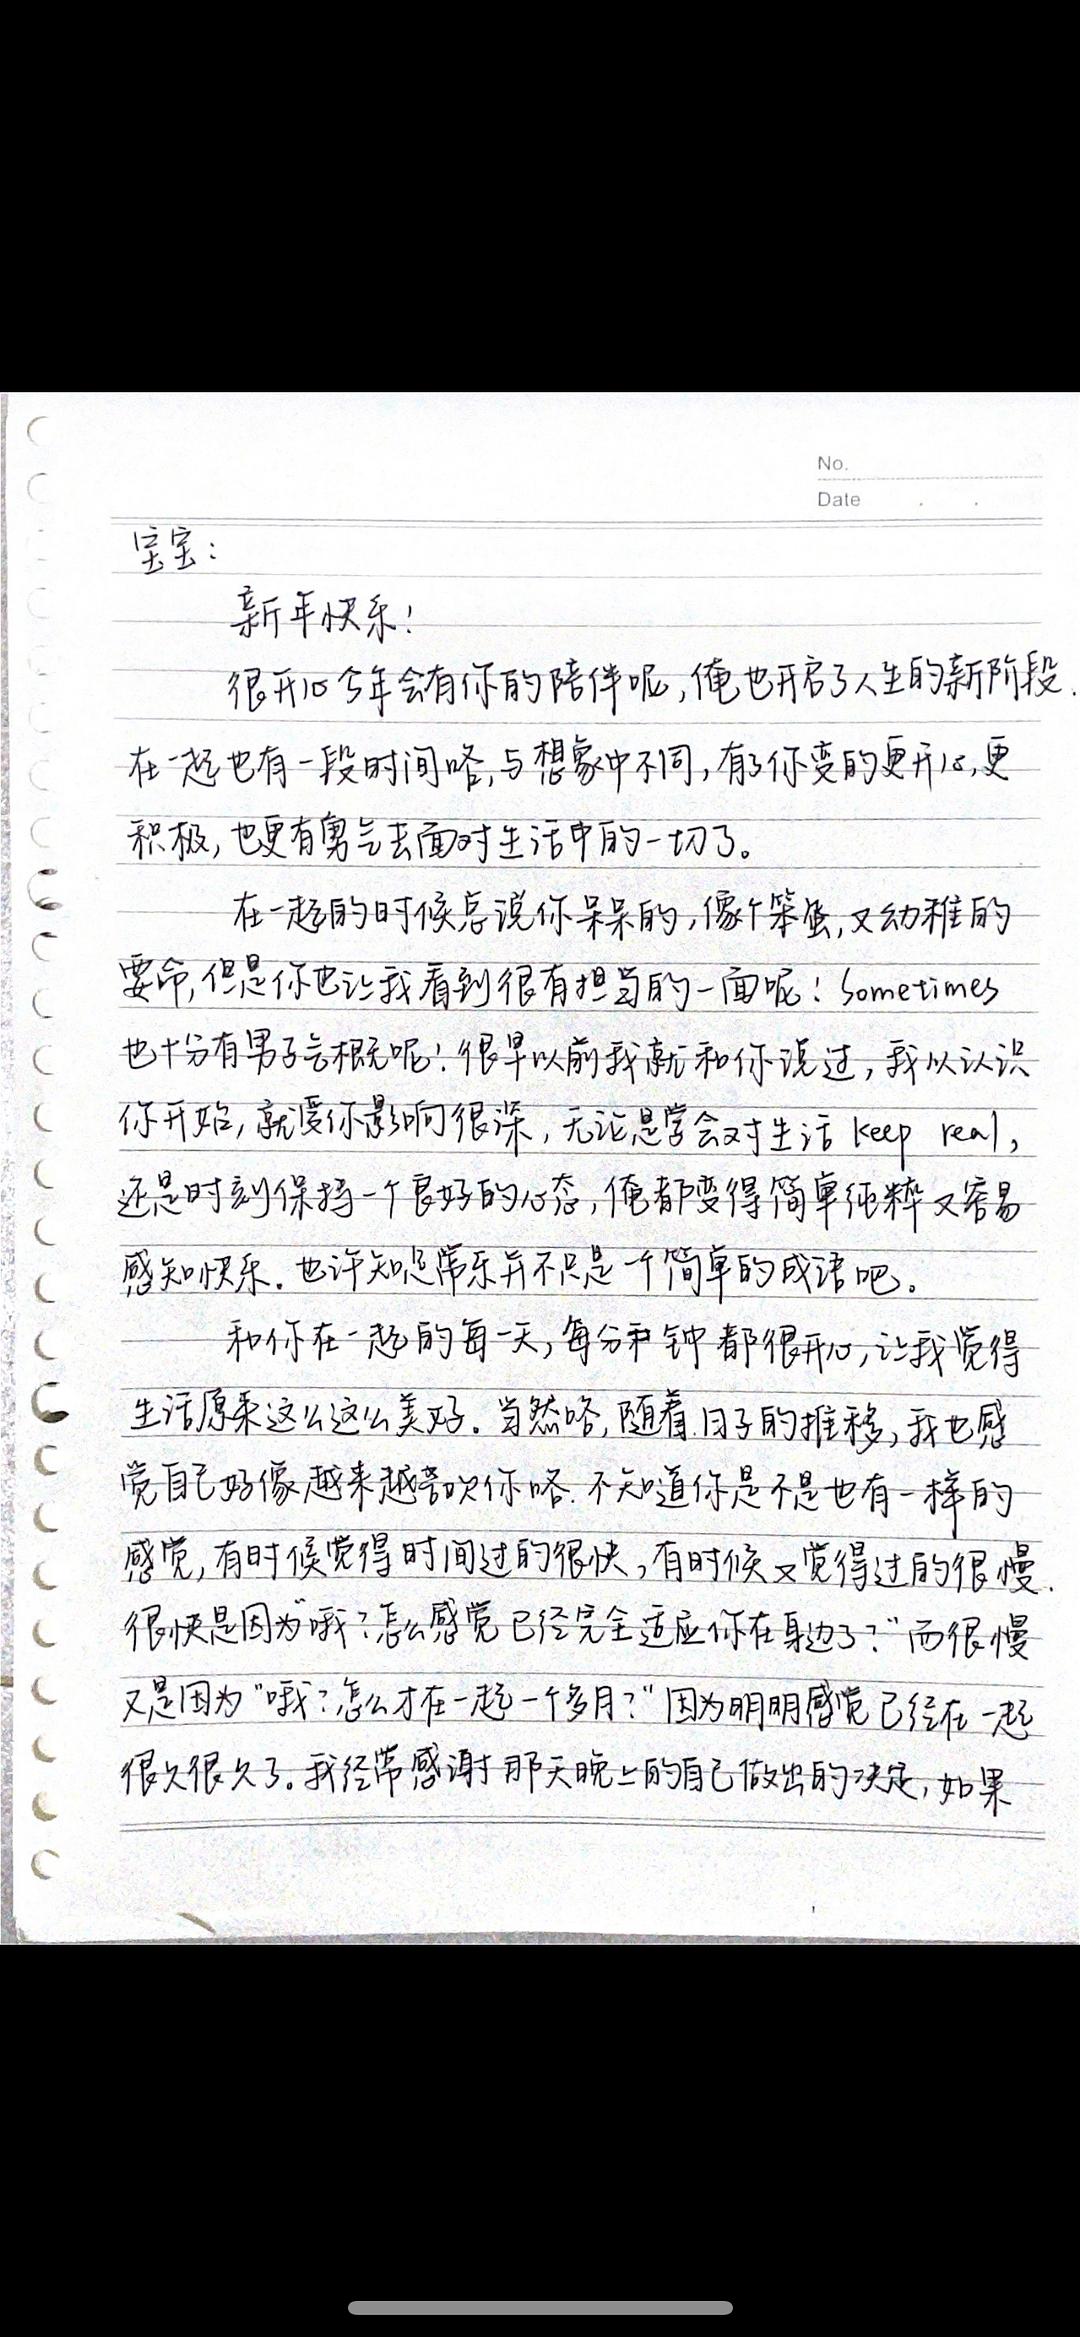 No.
Date
宝宝：
新年快乐！
很开心今年会有你的陪伴呢，俺也开启了人生的新阶段.
在一起也有一段时间咯，与想象中不同，有了你变的更开心，更
积极，也更有勇气去面对生活中的一切了。
在一起的时候总说你呆呆的，像个笨蛋，又幼稚的
要命，但是你也让我看到很有担当的一面呢！Sometimes
也十分有男子气概呢！很早以前我就和你说过，我从认识
你开始，就受你影响很深，无论是学会对生活 keep real，
还是时刻保持一个良好的心态，俺都变得简单纯粹又容易
感知快乐．也许知足常乐并不只是一个简单的成语吧。
和你在一起的每一天，每分秒钟都很开心，让我觉得
生活原来这么这么美好．当然咯，随着日子的推移，我也感
觉自己好像越来越喜欢你咯．不知道你是不是也有一样的
感觉，有时候觉得时间过的很快，有时候又觉得过的很慢．
很快是因为“哦？怎么感觉已经完全适应你在身边了？”而很慢
又是因为“哦？怎么才在一起一个多月？”因为明明感觉已经在一起
很久很久了。我经常感谢那天晚上的自己做出的决定，如果